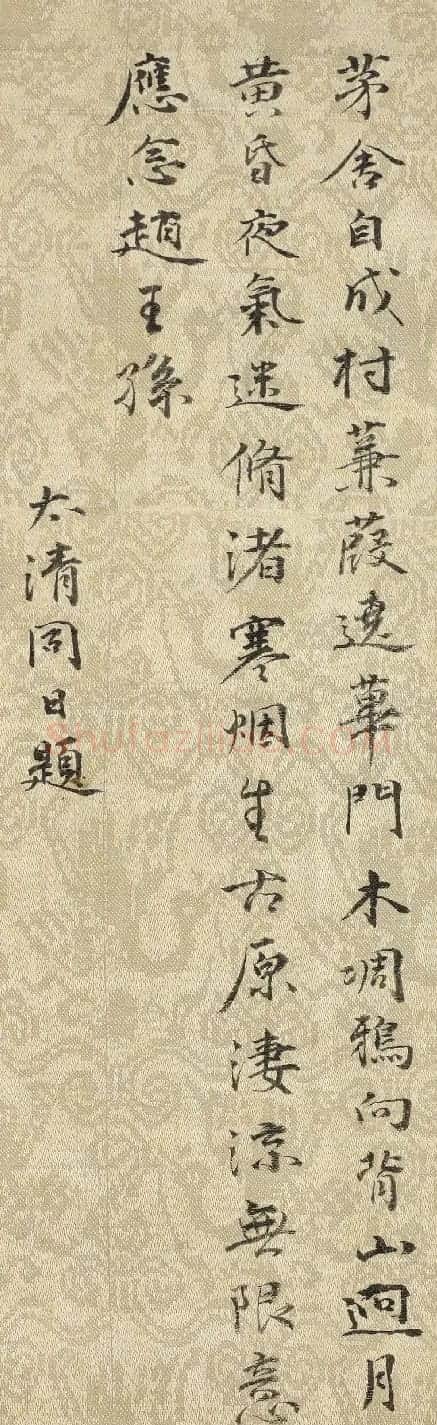 茅舍自成村蒹葭遶蓽門木凋鴉向背山迥月
黄昏夜氣迷脩渚寒烟生古原淒涼無限意
應念趙王孫
太清同日題
shufazidao.com